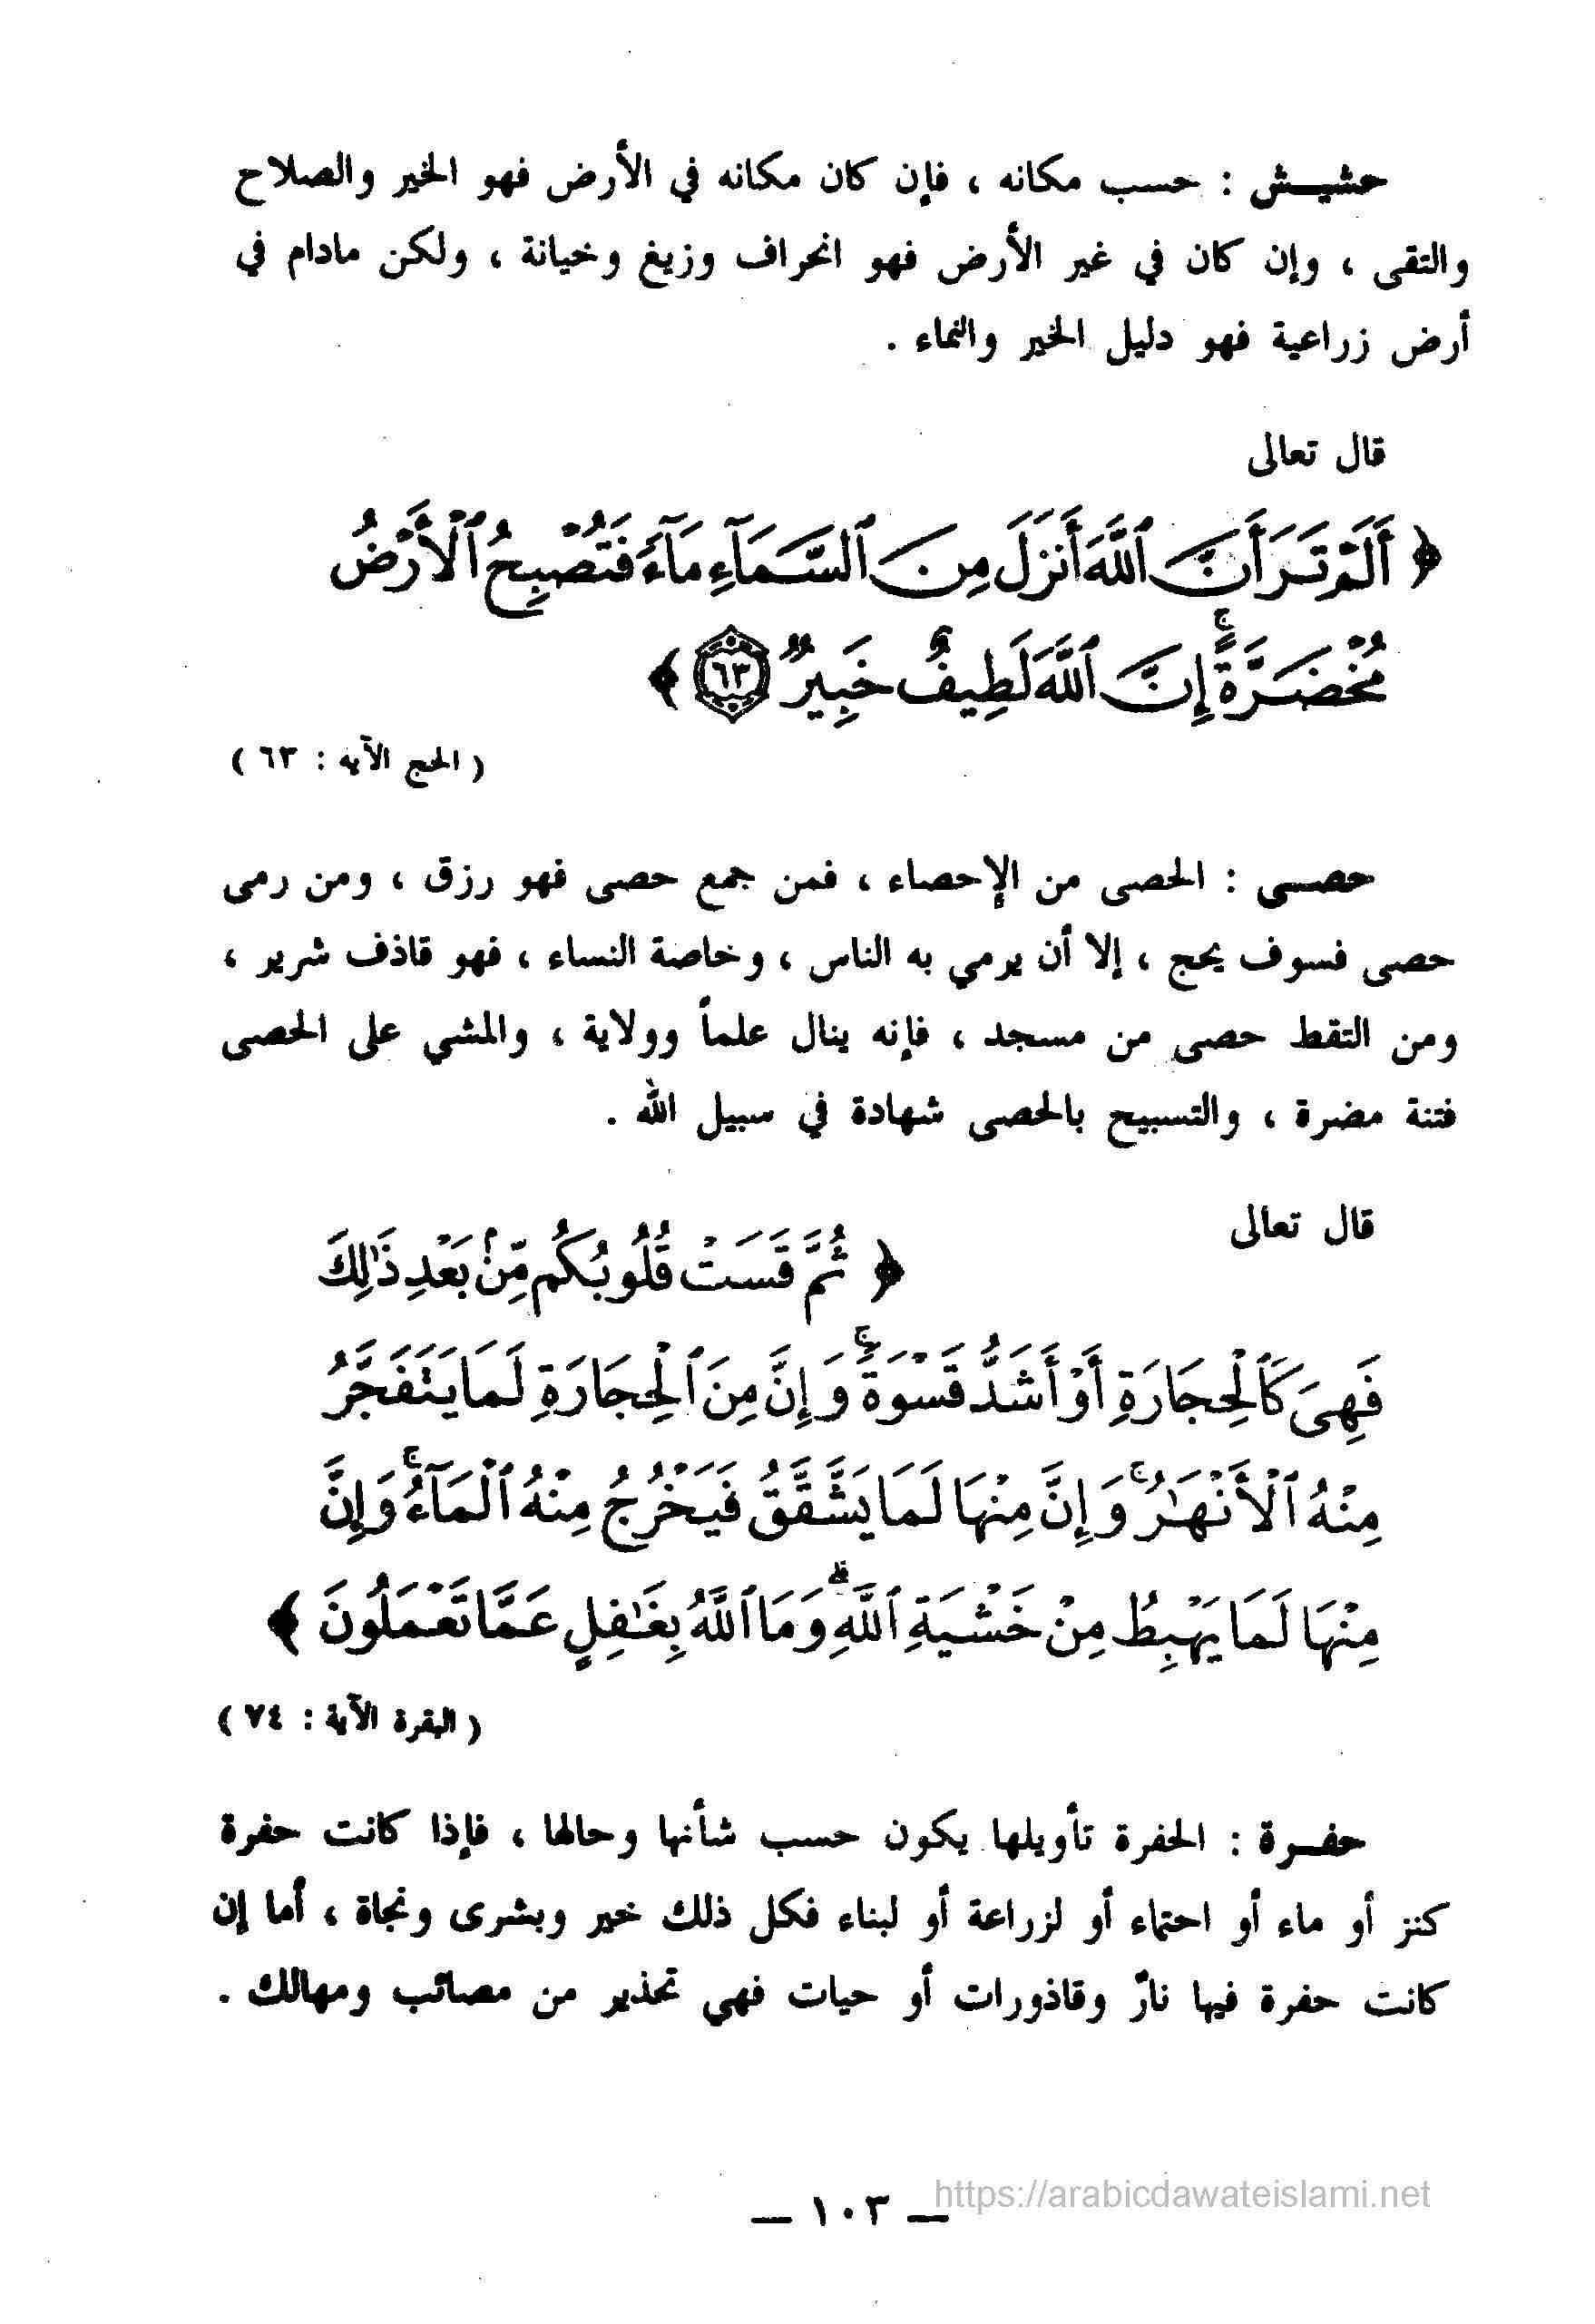 حشيـش : حسب مكانه ، فإن كان مكانه في الأرض فهو الخير والصلاح
والتقى ، وإن كان في غير الأرض فهو انحراف وزيغ وخيانة ، ولكن مادام في
أرض زراعية فهو دليل الخير والنماء .
قال تعالى
﴿ أَلَمْ تَرَ أَنَّ ٱللَّهَ أَنزَلَ مِنَ ٱلسَّمَآءِ مَآءً فَتُصْبِحُ ٱلْأَرْضُ
مُخْضَرَّةً ۚ إِنَّ ٱللَّهَ لَطِيفٌ خَبِيرٌ ٦٣ ﴾
( الحج الآيه : ٦٣ )
حصـى : الحصى من الإحصاء ، فمن جمع حصى فهو رزق ، ومن رمى
حصى فسوف يحج ، إلا أن يرمي به الناس ، وخاصة النساء ، فهو قاذف شرير ،
ومن التقط حصى من مسجد ، فإنه ينال علماً وولاية ، والمشي على الحصى
فتنة مضرة ، والتسبيح بالحصى شهادة في سبيل الله .
قال تعالى
﴿ ثُمَّ قَسَتْ قُلُوبُكُم مِّنۢ بَعْدِ ذَٰلِكَ
فَهِىَ كَٱلْحِجَارَةِ أَوْ أَشَدُّ قَسْوَةً ۚ وَإِنَّ مِنَ ٱلْحِجَارَةِ لَمَا يَتَفَجَّرُ
مِنْهُ ٱلْأَنْهَٰرُ ۚ وَإِنَّ مِنْهَا لَمَا يَشَّقَّقُ فَيَخْرُجُ مِنْهُ ٱلْمَآءُ ۚ وَإِنَّ
مِنْهَا لَمَا يَهْبِطُ مِنْ خَشْيَةِ ٱللَّهِ ۗ وَمَا ٱللَّهُ بِغَٰفِلٍ عَمَّا تَعْمَلُونَ ﴾
( البقرة الآية : ٧٤ )
حفـرة : الحفرة تأويلها يكون حسب شأنها وحالها ، فإذا كانت حفرة
كنز أو ماء أو احتماء أو لزراعة أو لبناء فكل ذلك خير وبشرى ونجاة ، أما إن
كانت حفرة فيها نارٌ وقاذورات أو حيات فهي تحذير من مصائب ومهالك .
https://arabicdawateislami.net
— ١٠٣ —